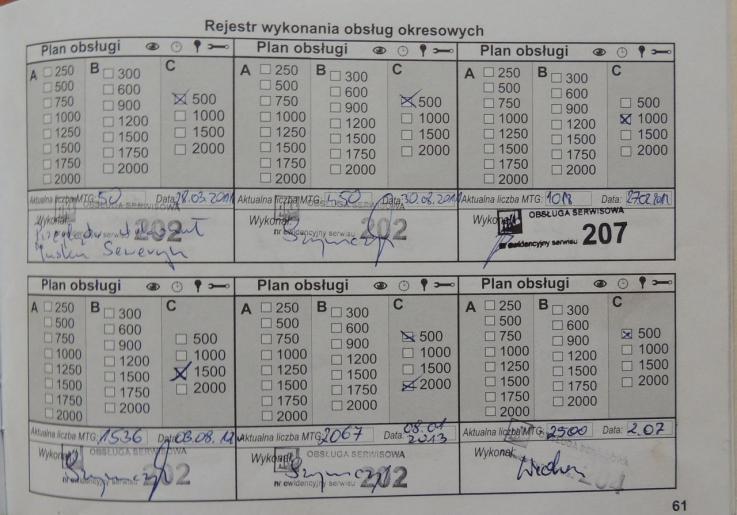 Rejestr wykonania obsług okresowych
Plan obsługi
A 250 B 300 C
500 600
750 900 500
1000 1200 1000
1250 1500 1500
1500 1750 2000
1750 2000
2000
Aktualna liczba MTG: 50 Data: 28.03.2011
Wykonał:
OBSŁUGA SERWISOWA
nr ewidencyjny serwisu 202
Plan obsługi
A 250 B 300 C
500 600
750 900 500
1000 1200 1000
1250 1500 1500
1500 1750 2000
1750 2000
2000
Aktualna liczba MTG: 450 Data: 30.08.2011
Wykonał:
OBSŁUGA SERWISOWA
nr ewidencyjny serwisu 202
Plan obsługi
A 250 B 300 C
500 600
750 900 500
1000 1200 1000
1250 1500 1500
1500 1750 2000
1750 2000
2000
Aktualna liczba MTG: 1018 Data:
Wykonał:
OBSŁUGA SERWISOWA
nr ewidencyjny serwisu 207
Plan obsługi
A 250 B 300 C
500 600
750 900 500
1000 1200 1000
1250 1500 1500
1500 1750 2000
1750 2000
2000
Aktualna liczba MTG: 1536 Data: 03.08.12
Wykonał:
OBSŁUGA SERWISOWA
nr ewidencyjny serwisu 202
Plan obsługi
A 250 B 300 C
500 600
750 900 500
1000 1200 1000
1250 1500 1500
1500 1750 2000
1750 2000
2000
Aktualna liczba MTG: 2067 Data: 08.01 2013
Wykonał:
OBSŁUGA SERWISOWA
nr ewidencyjny serwisu 202
Plan obsługi
A 250 B 300 C
500 600
750 900 500
1000 1200 1000
1250 1500 1500
1500 1750 2000
1750 2000
2000
Aktualna liczba MTG: 2500 Data: 2.07
Wykonał:
61